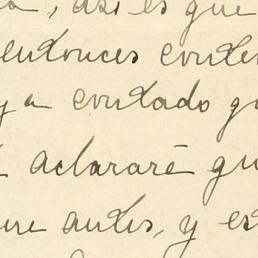 , así es que
entonces conte
ya contado q
aclararé qu
antes, y es